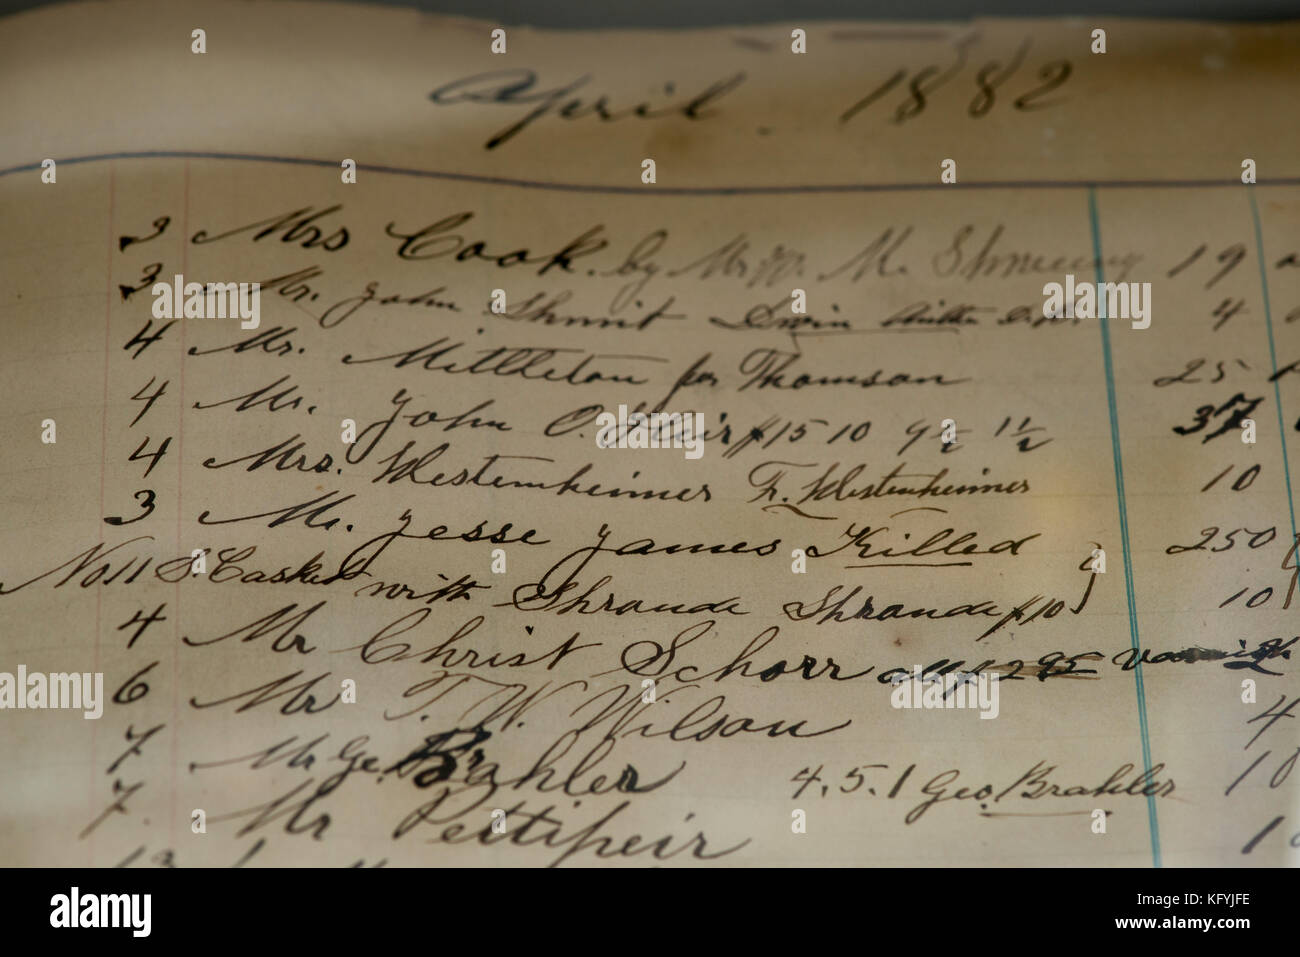 April. 1882
3 Mrs Cook. by Mr W. M. 19
3 Mr. John Shmit 4
4 Mr. Mittleton for Thomson 25
4 Mr. John O. Heir $15 10 9½ 1½ 37
4 Mrs. Westenheimer F. Westenheimer 10
3 Mr. Jesse James Killed 250
No 11 S. Casket with Shroude Shroude $10 10
4 Mr Christ Schorr all of 295
6 Mr T. W. Wilson 4
7 Mr Geo. Brahler 4.5.1 Geo. Brahler 10
7. Mr Pettipeir 1
13
a alamy
alamy
Image ID: KFYJFE
www.alamy.com